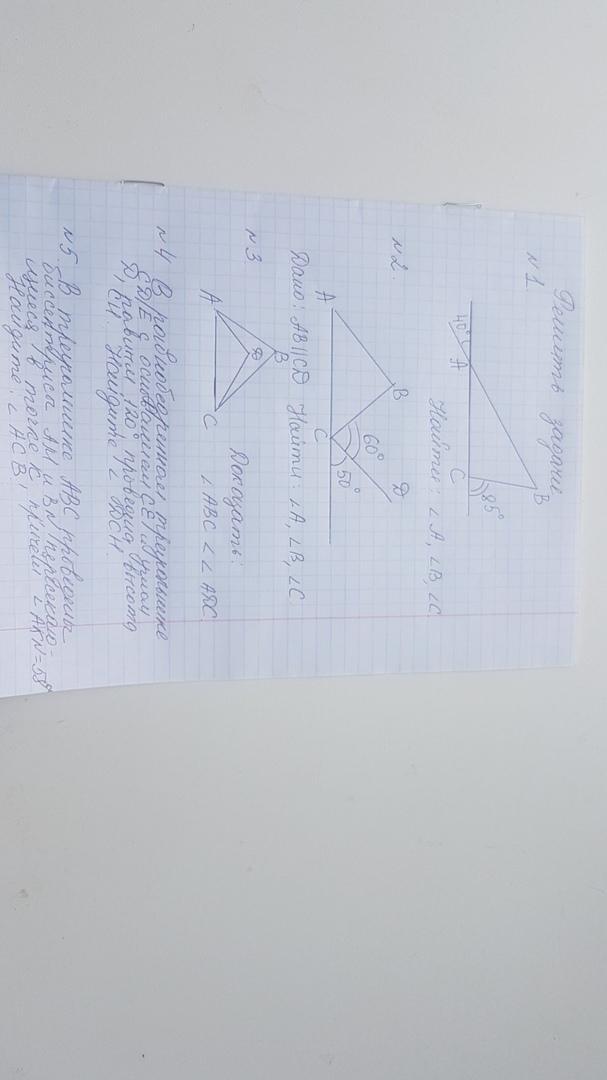 Решить задачи
№1.
B
40°
A
C
85°
Найти: ∠A, ∠B, ∠C
№2.
B
D
60°
50°
A
C
Дано: AB∥CD Найти: ∠A, ∠B, ∠C
№3
B
D
A
C
Доказать:
∠ABC < ∠ADC
№4 В равнобедренном треугольнике
CDE с основанием CE и углом
D, равным 120° проведена высота
CH. Найдите ∠DCH.
№5 В треугольнике ABC проведены
биссектрисы AM и BN пересекаю-
щиеся в точке K, причем ∠AKN=58°
Найдите: ∠ACB.